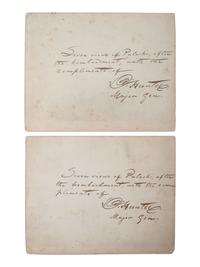 Seven views of Pulaski, after
the bombardment, with the
compliments of
D. Hunter
Major Gen.
Seven views of Pulaski, after
the bombardment with the com-
pliments of
D. Hunter
Major Gen.